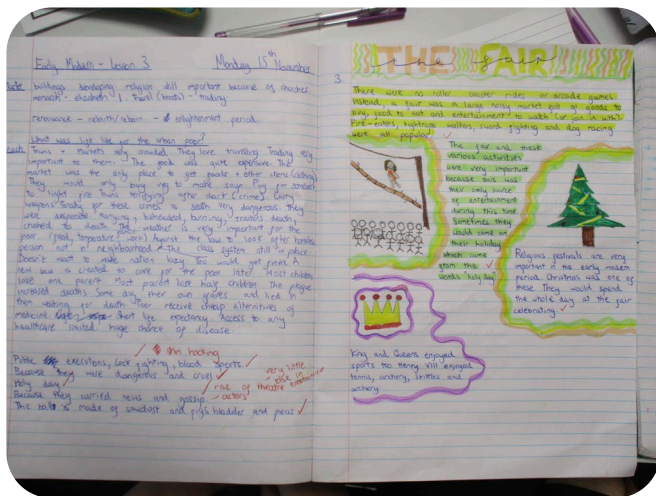 Early Modern - Lesson 3 Monday 15th November
buildings developing religion still important because of churches
monarch - elizabeth 1 - travel (boats) - trading
renaissance - rebirth/reborn - enlightenment period.
What was life like for the urban poor?
Towns + Markets very crowded. They love travelling Trading very
important to them. The food was quite expensive The
market was the only place to get goods + other items (clothing)
They would only buy veg to make soup. Pay for someone
to light fire Towns terrifying after dark (crime). Carry
weapons Penalty for these crimes is death Very dangerous they
were desperate hanging, beheaded, burning, traitors death,
crushed to death The weather is very important for the
poor (food, temperature, work) Against the law to look after homeless
person not in neighbourhood The class system still in place
Doesn't want to make nation lazy. Too would get fined A
new law is created to care for the poor later Most children
lose one parent Most parent lose half children The people
increased deaths Some dug their own graves and lied in
them waiting for death Poor receive cheap alternatives of
medicine Short life expectancy Access to any
healthcare limited huge chance of disease
Public executions, Cock fighting, blood sports ✓
Because they were dangerous and cruel ✓
Holy day ✓
very little else in entertainment
rise of theatre
Because they carried news and gossip - actors
This ball is made of sawdust and pig's bladder and peas ✓
THE FAIR
the fair
3.
There were no roller coaster rides or arcade games.
Instead, a fair was a large noisy market full of goods to
buy, food to eat and entertainment to watch (or join in with).
Fire-eaters, tightrope walkers, sword fighting and dog racing
were all popular
The fair and these
various activities
were very important
because this was
their only source
of entertainment
during this time
Sometimes they
would come on
their holiday
which came
from the ✓
words 'holy day'
Religious festivals are very
important in the early modern
period. Christmas was one of
these. They would spend
the whole day at the fair
celebrating. ✓
King and Queens enjoyed
sports too Henry VIII enjoyed
tennis, archery, skittles and
archery